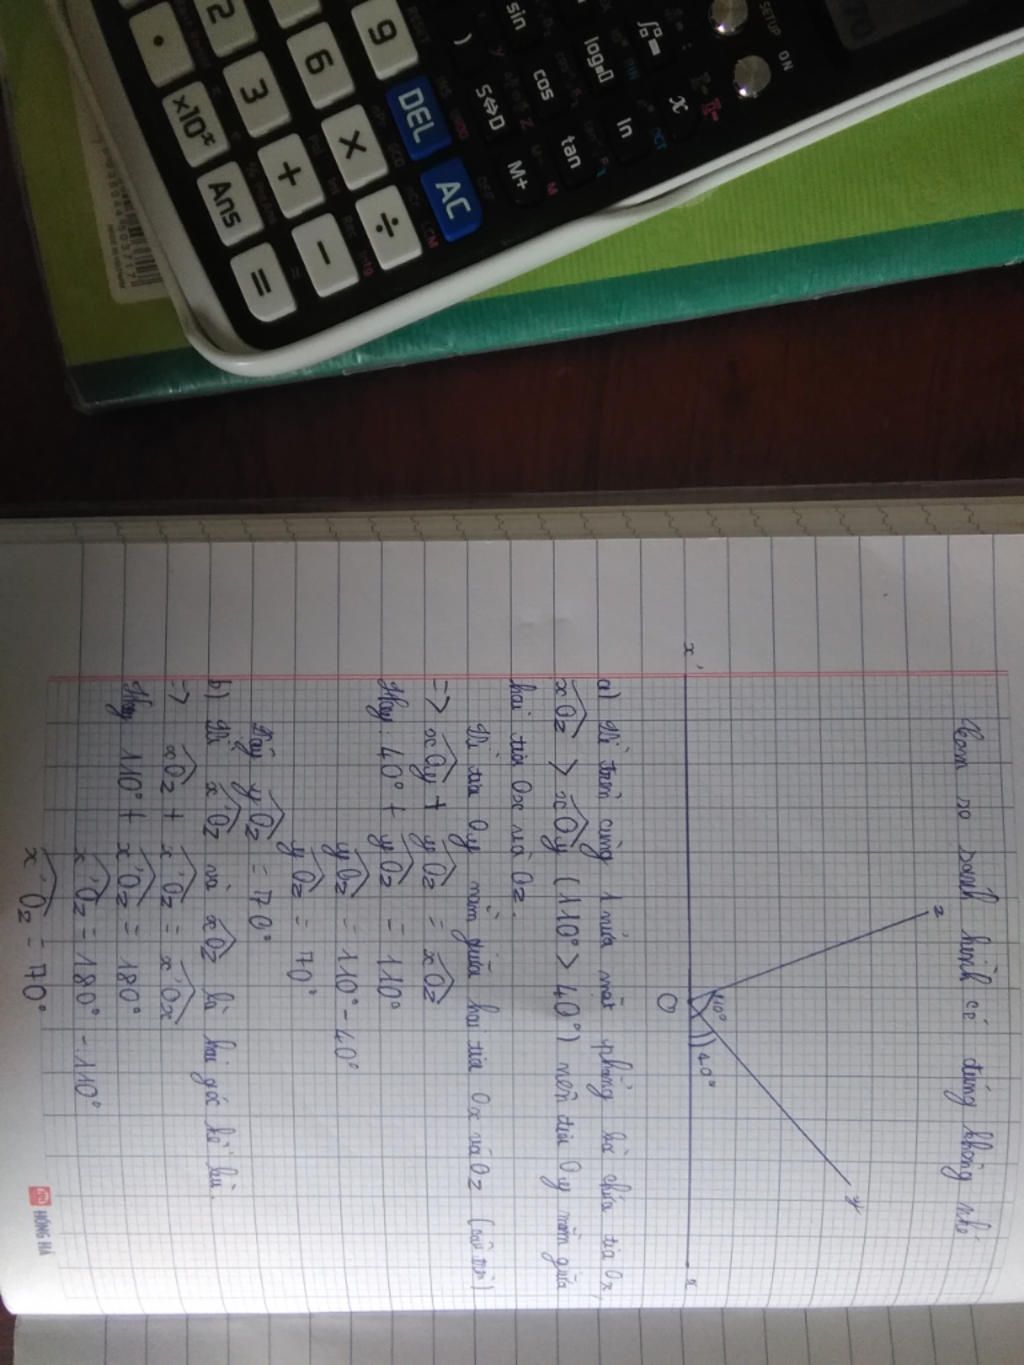 SETUP ON
x
log■□
ln
sin
cos
tan
)
S⇔D
M+
9
DEL
AC
6
×
÷
2
3
+
−
•
×10ˣ
Ans
=
so sánh hình có đúng không nhé
z
y
110°
40°
x'
O
x
a) Vì trên cùng 1 nửa mặt phẳng bờ chứa tia Ox,
xOz > xOy (110° > 40°) nên tia Oy nằm giữa
hai tia Ox và Oz.
Vì tia Oy nằm giữa hai tia Ox và Oz (câu trên)
=> xOy + yOz = xOz
Hay: 40° + yOz = 110°
yOz = 110° - 40°
yOz = 70°
Vậy yOz = 70°
b) Vì x'Oz và xOz là hai góc kề bù.
=> xOz + x'Oz = x'Ox
Hay 110° + x'Oz = 180°
x'Oz = 180° - 110°
x'Oz = 70°
HỒNG HÀ